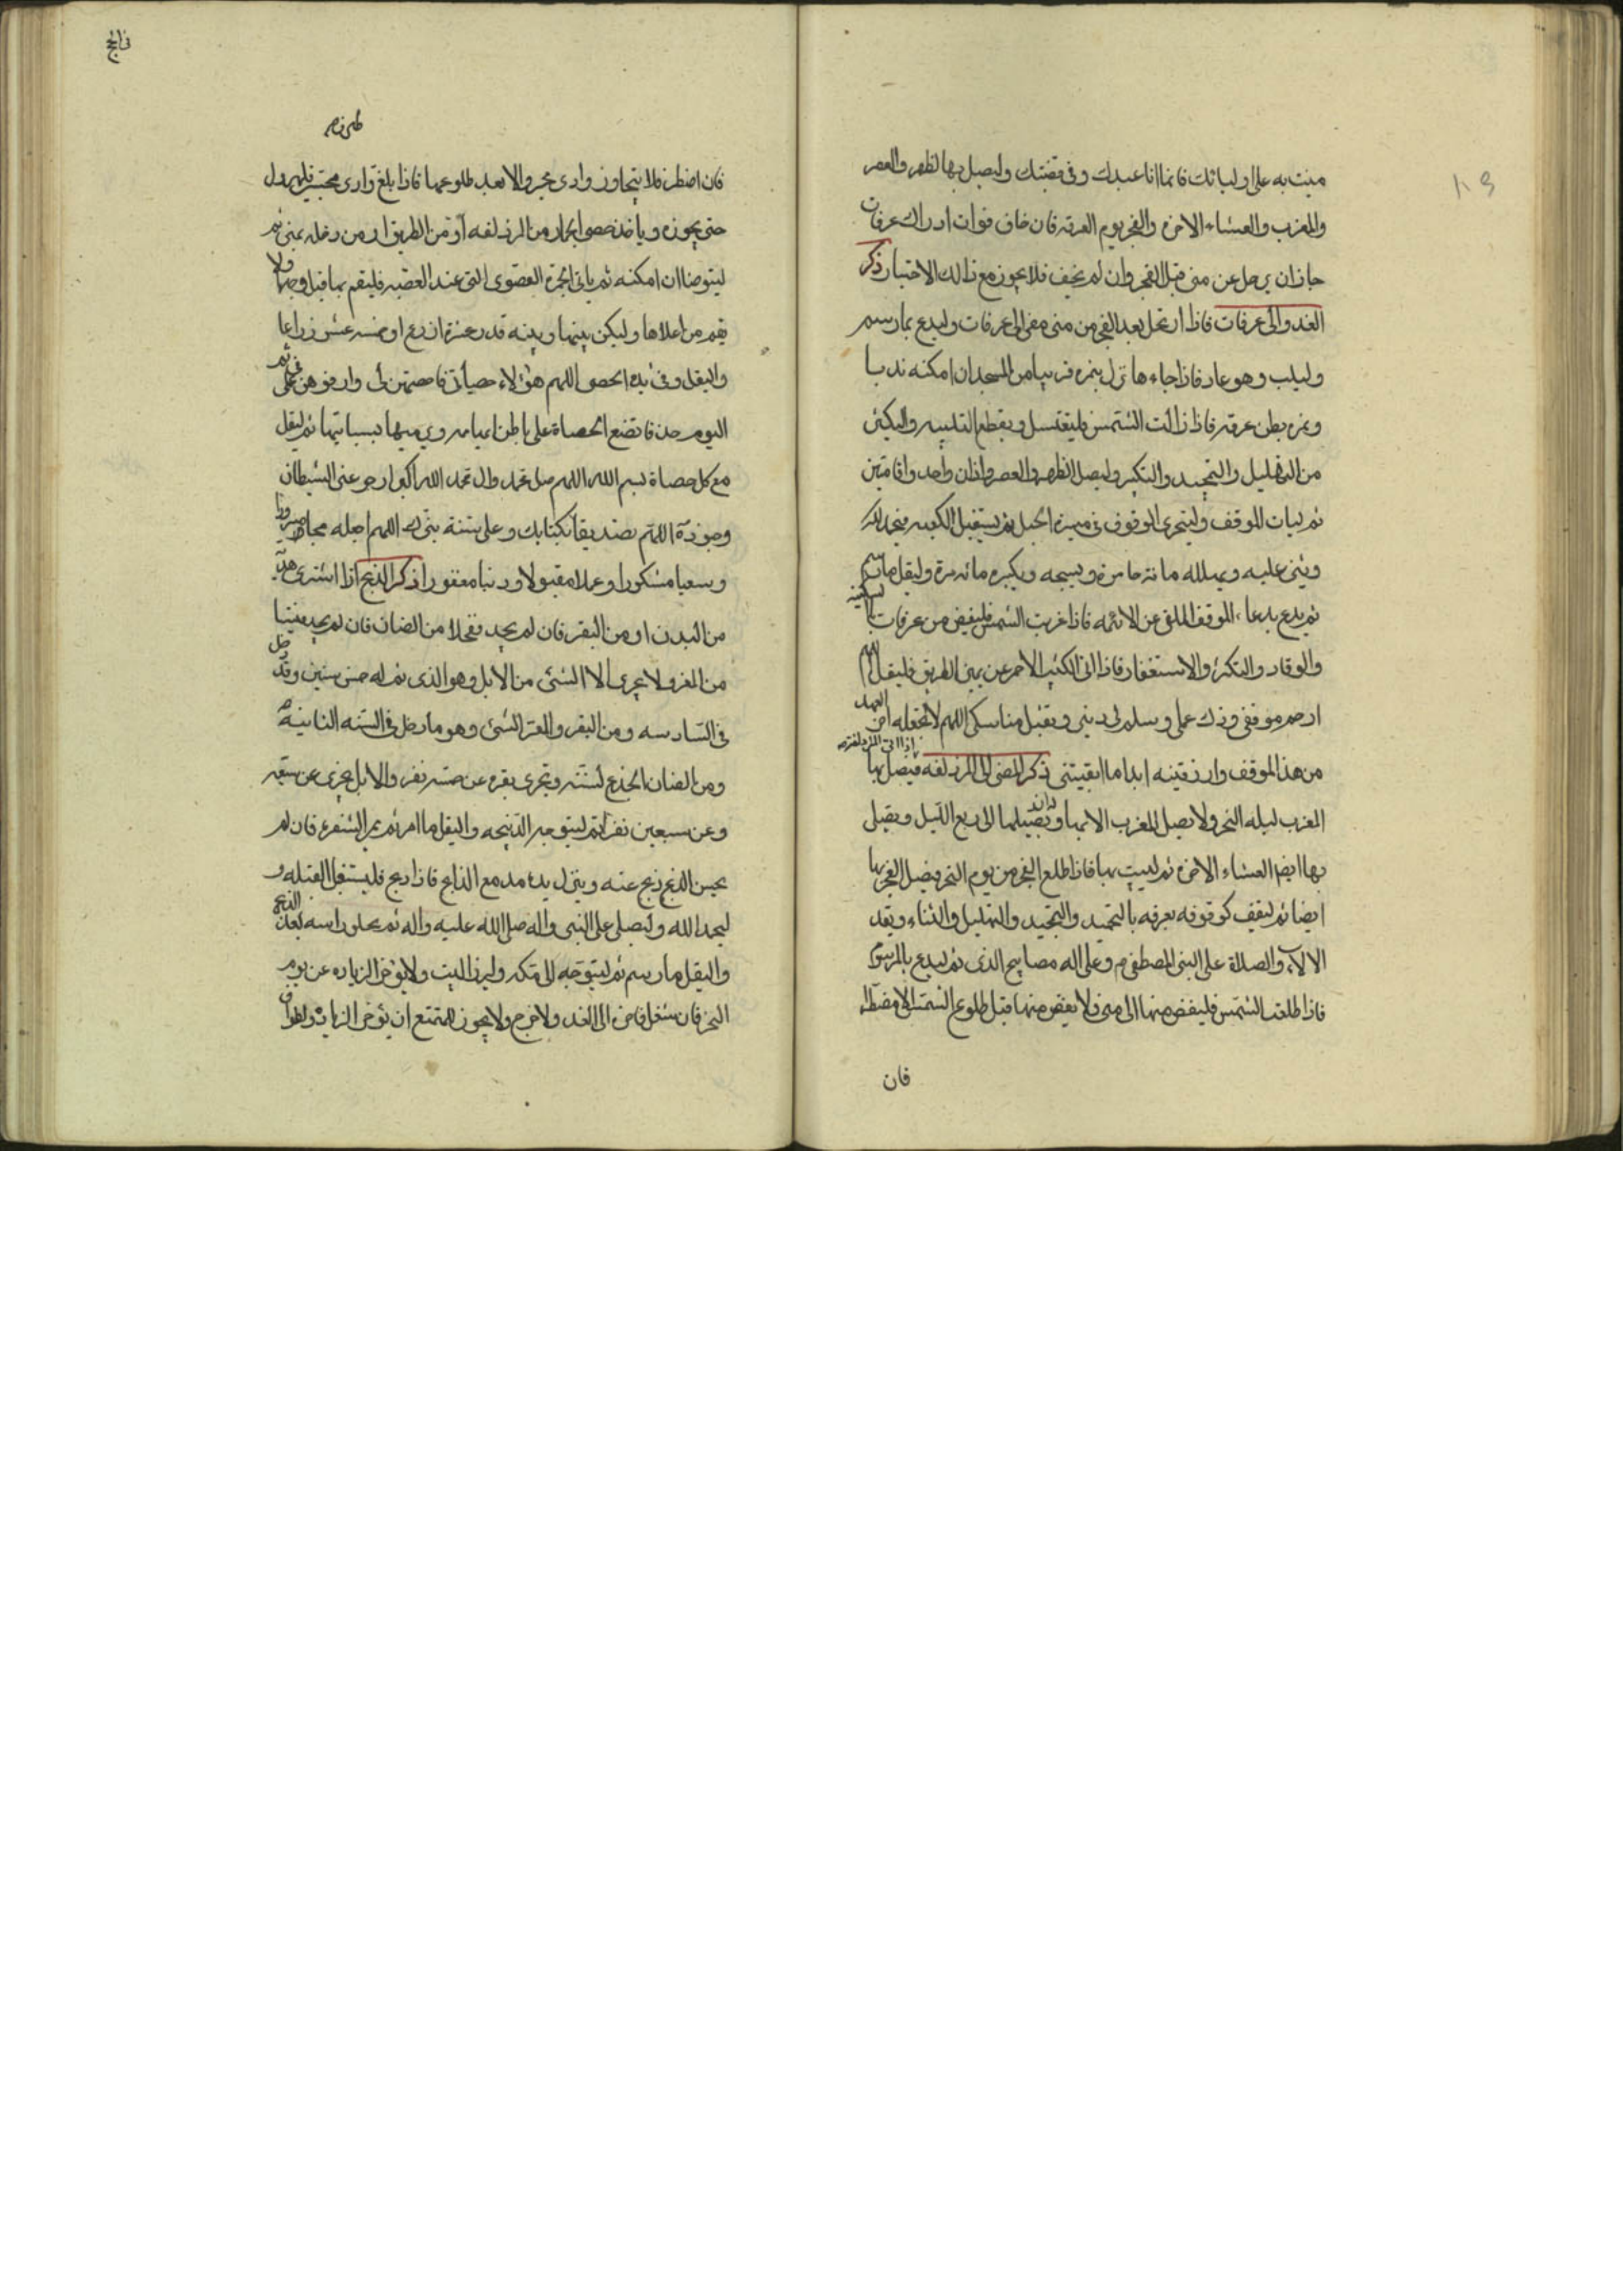 مننت به على اوليائك فانما انا عبدك وفى قبضتك وليصل بها الظهر والعصر
والمغرب والعشاء الاخرة والفجر يوم العرفه فان خاف فوات ادراك عرفات
جاز ان يرحل عن منى قبل الفجر وان لم يخف فلا يجوز مع ذالك الاختيار ذكر
الغدو الى عرفات فاذا ارتحل بعد الفجر من منى مضى الى عرفات وليدع بما رسم
وليلب وهو غاد فاذا جاءها نزل بنمره قريبا من المسجد ان امكنه ندبا
ونمره بطن عرفه فاذا زالت الشمس فليغتسل ويقطع التلبيه واليكثر
من التهليل والتحميد والتكبير وليصل الظهر والعصر باذان واحد واقامتين
ثم ليات الموقف وليتحرى الوقوف فى ميسرة الجبل ثم يستقبل الكعبه فيحمد الله
ويثنى عليه ويهلله مائة مرة ويسبحه ويكبره مائه مرة وليقل ما رسم
ثم يدع بدعاء الموقف الملقى عن الائمه فاذا غربت الشمس فليفيض من عرفات بالسكينه
والوقار والتكبير والاستغفار فاذا اتى الكثيب الاحمر عن يمين الطريق فليقل اللهم
ارحم موقفى وزك عملى وسلم لى دينى وتقبل مناسكى اللهم لا تجعله اخر العهد
من هذ الموقف وارزقنيه ابدا ما ابقيتنى ذكر المضى الى المزدلفه فيصل بها
اذا اتى المزدلفه
المغرب ليله النحر ولا يصل المغرب الا بها وان ذهب الى ربع الليل ويصلى
بها ايضا العشاء الاخرة ثم ليبت بها فاذا طلع الفجر من يوم النحر فيصل الفجر بها
ايضا ثم ليقف كوقوفه بعرفه بالتحميد والتمجيد والتهليل والثناء ويعدد
الالاء والصلاة على النبى المصطفى م وعلى اله مصابيح الدجى ثم ليدع بالمرسوم
فاذا طلعت الشمس فليفض منها الى منى ولا يفض منها قبل طلوع الشمس الا مضطرا
فان
فى الحج
فان اضطر فلا يتجاوز وادى محسر والا بعد طلوعها فاذا بلغ وادى محسر فليهرول
حتى يجوزه وياخذ حصى الجمار من المزدلفه او من الطريق او من رحله بمنى ثم
ليتوضا ان امكنه ثم ياتى الجمرة القصوى التى عند العقبه فليقم بها قبل وجهها ولا
يقم من اعلاها وليكن بينها وبينه قدر عشرة اذرع او خمسه عشر ذراعا
واليقل وفى يده الحصى اللهم هؤلاء حصياتى فاحصهن لى وارفعهن فى عملى ثم
مع كل حصاة بسم الله اللهم صل على محمد وال محمد الله اكبر ادحر عنى الشيطان
وجنوده اللهم تصديقا بكتابك وعلى سنة نبيك اللهم اجعله حجا مبرورا
وسعيا مشكورا وعملا مقبولا وذنبا مغفورا ذكر الذبح اذا اشترى هديه
من البدن او من البقر فان لم يجد ففحلا من الضان فان لم يجد فتيسا
من المعز ولا يجزى الا الثنى من الابل وهو الذى تم له خمس سنين وقد دخل
فى السادسه ومن البقر والمعز الثنى وهو ما دخل فى السنه الثانيه
ومن الضان الجذع لسنته وتجزى بقره عن خمسه نفر والابل يجزى عن سبعه
وعن سبعين نفرا ثم ليتوجه الذبيحه واليقل ما امر ثم يمر الشفره فان لم
يحسن الذبح ذبح عنه وينزل يده مدمع الذابح فاذا ذبح فليستقبل القبله و
ليحمد الله وليصلى على النبى واله صلى الله عليه واله ثم يحلق راسه بعد الذبح
واليقل ما رسم ثم ليتوجه الى مكه وليزر البيت ولا يؤخر الزياره عن يوم
النحر فان شغل فاخره الى الغد ولا حرج ولا يجوز للمتمتع ان يؤخر الزيارة والطواف